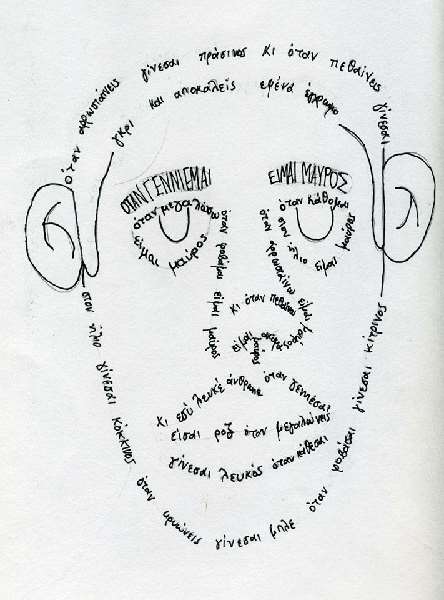 ΟΤΑΝ ΓΕΝΝΙΕΜΑΙ
ΕΙΜΑΙ ΜΑΥΡΟΣ
όταν μεγαλώνω
είμαι μαύρος
όταν κάθομαι
στον ήλιο
είμαι μαύρος
όταν φοβάμαι είμαι μαύρος
όταν αρρωσταίνω είμαι
μαύρος
κι όταν πεθαίνω
είμαι ακόμα
μαύρος
κι εσύ λευκέ άνθρωπε όταν γεννιέσαι
είσαι ροζ όταν μεγαλώνεις
γίνεσαι λευκός όταν κάθεσαι
στον ήλιο γίνεσαι κόκκινος όταν κρυώνεις γίνεσαι μπλε όταν φοβάσαι γίνεσαι κίτρινος
όταν αρρωσταίνεις γίνεσαι πράσινος κι όταν πεθαίνεις γίνεσαι
γκρι και αποκαλείς εμένα έγχρωμο